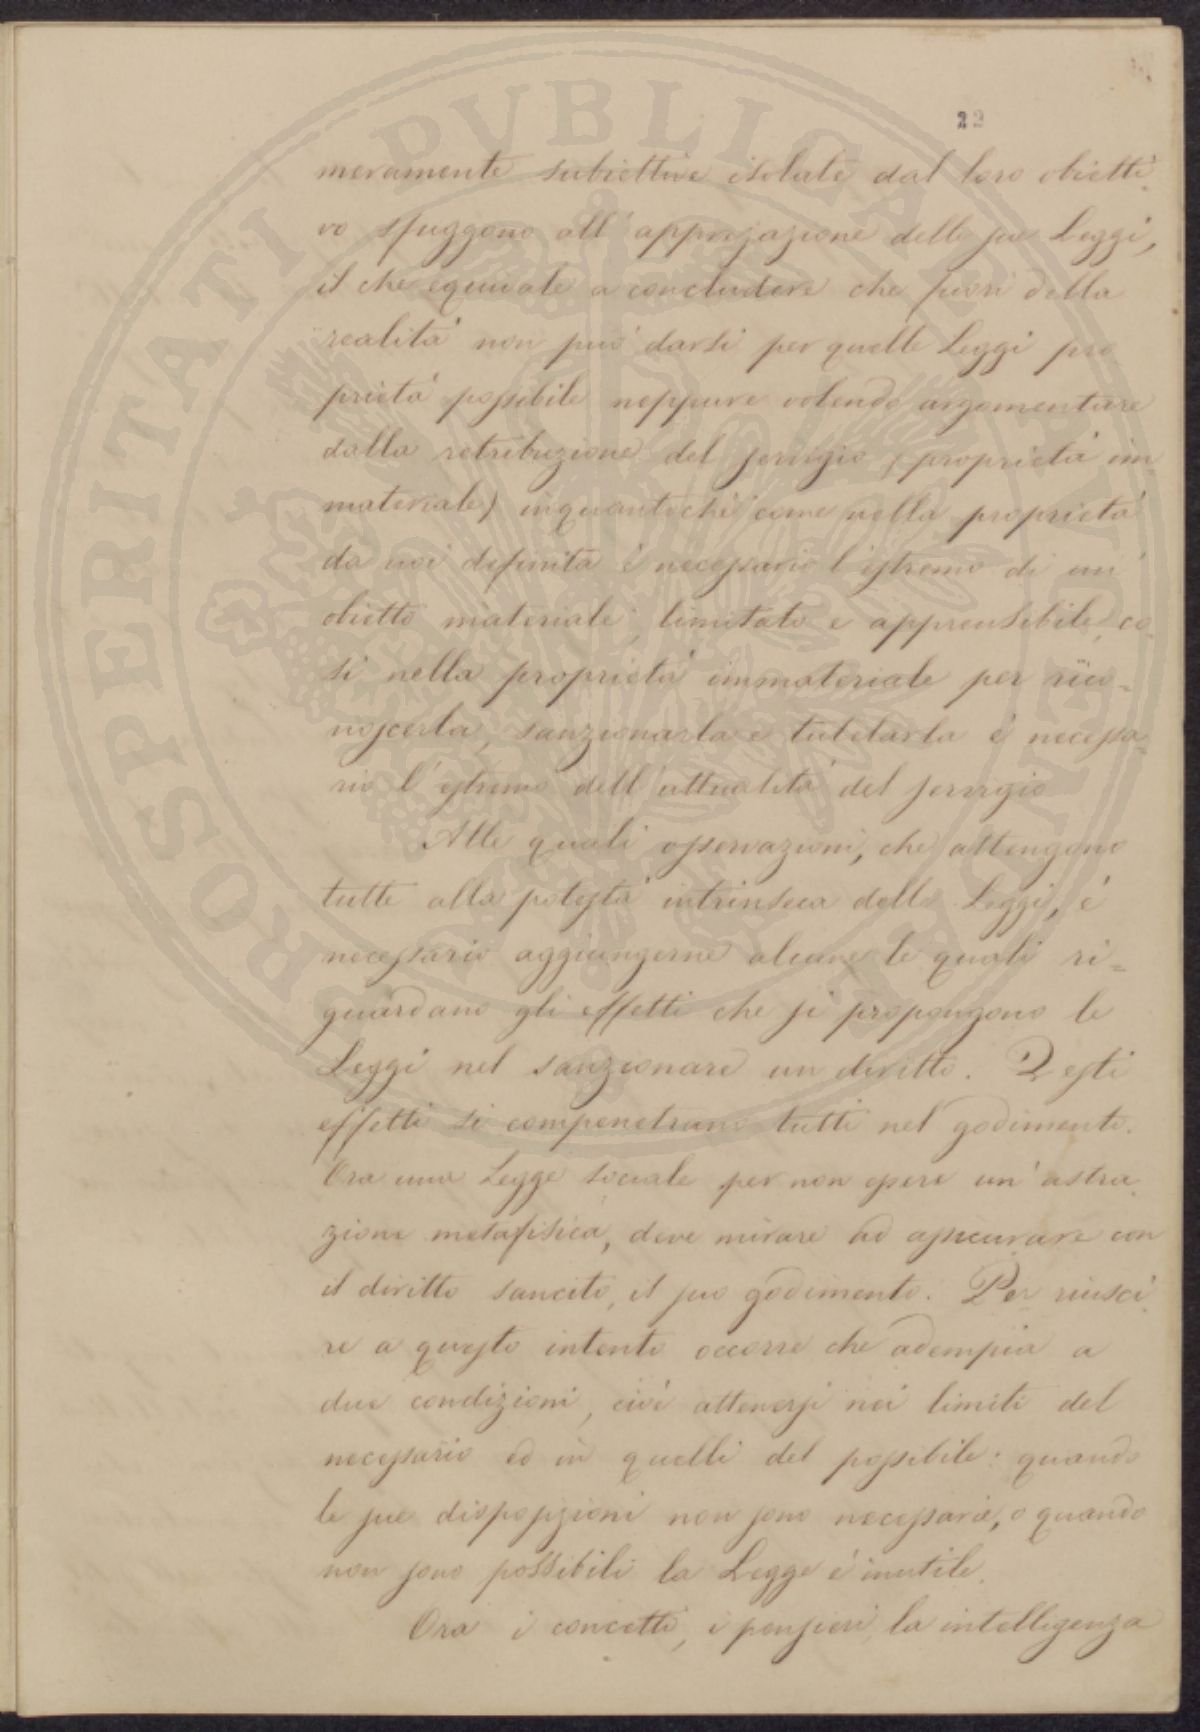 22
meramente subiettive isolate dal loro obietti
vo sfuggono all'apprezazione delle sue Leggi,
il che equivale a concludere che fuori della
realità non può darsi per quelle Leggi pro
prietà possibile neppure volendo argomentare
dalla retribuzione del servigio (proprietà im=
materiale) inquantochè come nella proprietà
da noi definita è necessario l'estremo di un'
obietto materiale, limitato e apprensibile, co
si nella proprietà immateriale per rico=
noscerla, sanzionarla e tutelarla è necessa
rio l'estremo dell'attualità del servigio
Alle quali osservazioni, che attengono
tutte alla potestà intrinseca delle Leggi, è
necessario aggiungerne alcune le quali ri=
guardano gli effetti che si propongono le
Leggi nel sanzionare un diritto. Questi
effetti si compenetrano tutti nel godimento.
Ora una Legge sociale per non essere un'astra
zione metafisica, deve mirare ad assicurare con
il diritto sancito, il suo godimento. Per riusci
re a questo intento occorre che adempia a
due condizioni, cioè attenersi nei limiti del
necessario ed in quelli del possibile: quando
le sue disposizioni non sono necessarie, o quando
non sono possibili la Legge è inutile.
Ora i concetti, i pensieri, la intelligenza
PROSPERITATI PVBLICAE